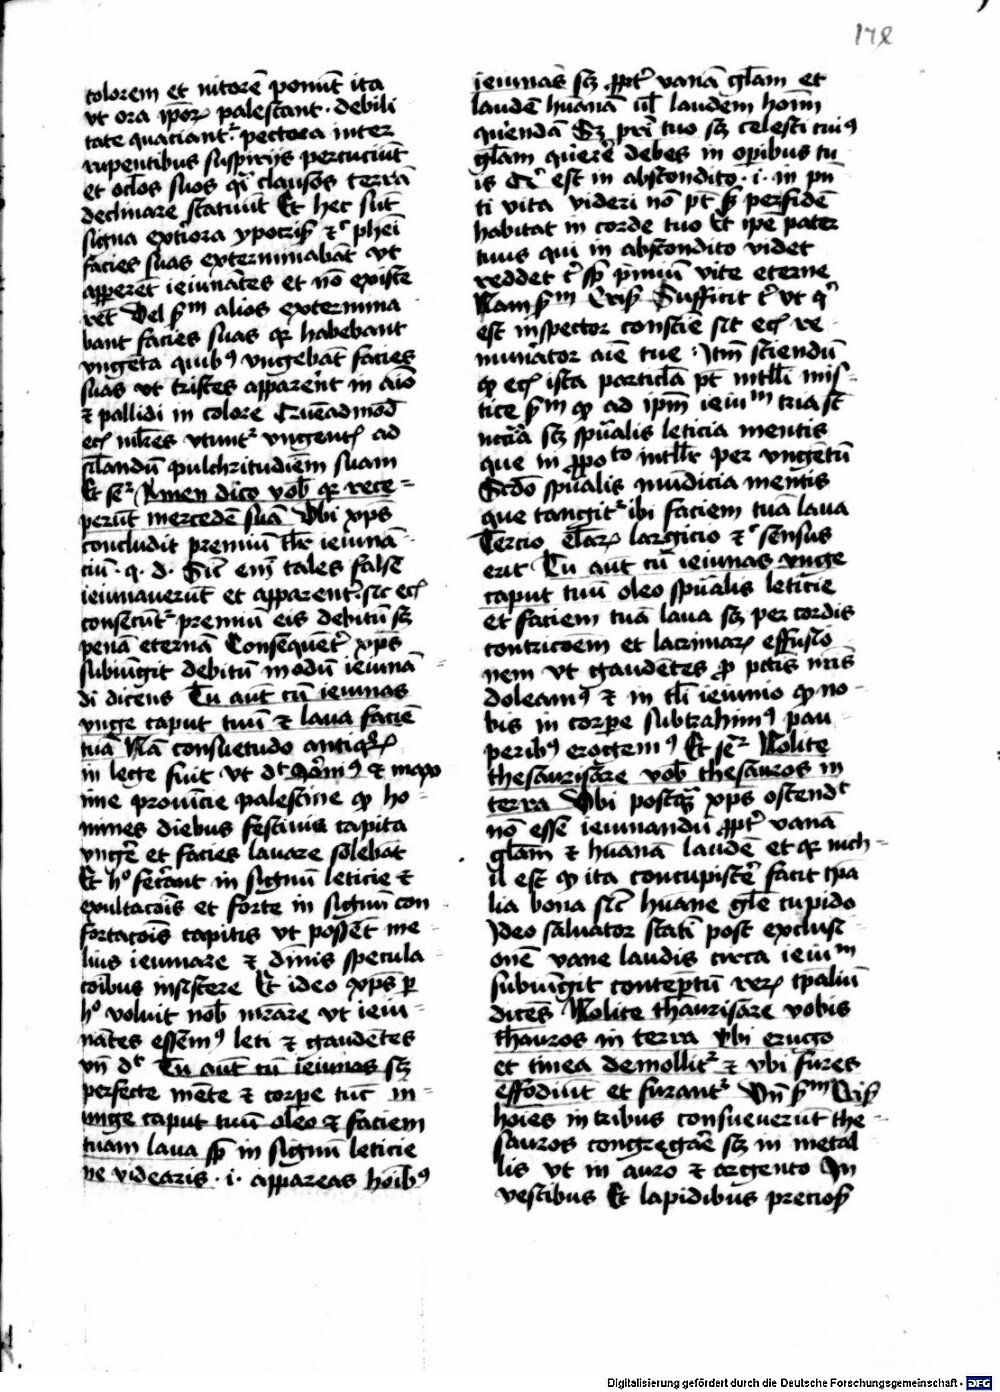 172
colorem et nitorē ponūt ita
ut ora ipoꝝ palescant · debili
tate quaciantᵣ pectora inter
rupentibus suspirijs percuciūt
et oclos suos qͥ clausos terrā
declinare statuūt Et hec sūt
signa exteriora ypocrisꝭ
facies suas exterminabāt ut
apperēt ieiunātes et nō existe
rēt Vel ẜm alios extermina
bant facies suas qꝛ habebant
ungēta quibꝰ ungebāt facies
suas ut tristes apparerēt in aīo
⁊ pallidi in colore Quēadmod̄
ungentꝭ ad
pulchritudiēm suam
Amen dico vob̄ qꝛ rece=
perūt mercedē suā Vbi xp̄s
concludit premiū ieiunā
ciū · q · d · Sic em̄ tales false
ieiunaverūt et apparent
consecūtᵣ premiū eis debitū sꝫ
penā eternā Consequēter xp̄s
subiūgit debitū modū ieiunā
di dicens Tu aūt cū ieiunas
unge caput tuū ⁊ lava faciē
tuā Nā consuetudo antiqͦꝝ
in lege fuit ut ⁊ maxi
me provīcie palestine qͦ ho
mines diebus festivis capita
ungēͬ et facies lavare solebāt
Et hͦ fecēͬant in signū leticie ⁊
exultacōis et forte in signū con
fortacōis capitis ut possēt me
lius ieiunare ⁊ divīnis specula
cōibus insistere Et ideo xp̄s ꝑ
hͦ voluit nob̄ ut ieiu
nātes essemꝰ leti ⁊ gaudētes
vn̄ dͭ Tu aūt cū ieiunas sꝫ
perfecte mēte ⁊ corpe tūc in
unge caput tuū oleo ⁊ faciem
tuam lava in signū leticie
ne videaris · i · appareas hoībꝰ
ieiunās sꝫ ꝓpt̄ vanā gl̄am et
laudē hūanā ul̄ laudem hoīm
quendā Sꝫ pr̄i tuo sꝫ celesti cuiꝰ
gl̄am querē debes in opibus tu
is est in abscondito · i · in pn̄
ti vita videri nō pt̄ perfidē
habitat in corde tuo Et ipē pater
tuus qui in abscondito videt
reddet tͥ pͬmiū vite eterne
Nam ẜm Crisꝭ Sufficit tͥ ut qͥ
est inspector conscīe sit re
munāͬtor aīe tue · Itm̄ sciendū
qͦ ista particl̄a pt̄ intll̄i mis
tice ẜm qͦ ad ip̄m ieiuᵐ tria st̄
nccīa sꝫ spūalis leticia mentis
que in ꝓpoᵗᵒ intll̄r per ungētū
Scd̄o spūalis mūdicia mentis
que tangitᵣ ibi faciem tuā lava
Tercio largicio ⁊ͨ sensus
erit Tu aūt cū ieiunas unge
caput tuū oleo spūalis leticie
et faciem tuā lava sꝫ per cordis
contricōem et lacrimaꝝ effusio
nem ut gaudētes ꝓ pctīs nr̄is
doleamꝰ ⁊ in tl̄i ieiunio qͦ no
bis in corpe subtrahimꝰ pau
peribꝰ erogemꝰ Et seͬ Nolite
thesaurisare vob̄ thesauros in
terra Vbi postqͣ xp̄s ostendͭ
nō esse ieiunandū ꝓpt̄ vanā
gl̄am ⁊ hūanā laudē et qꝛ nich
il est qͦ ita concupiscēͬ facit tp̄a
lia bona sic hūane gl̄e cupido
Ideo salvator statī post exclusi
onē vane laudis circa ieiuᵐ
subiūgit contēptū reꝝ tp̄aliū
dicēs Nolite tħaurisare vobis
tħauros in terra vbi erugo
et tinea demollitᵣ ⁊ ubi fures
effodiūt et furantᵣ Vn̄ ẜm Crisꝭ
hoīes in tribus consueverūt the
sauros congregāͬe sꝫ in metal
lis ut in auro ⁊ argento In
vestibus Et lapidibus preciosꝭ
Digitalisierung gefördert durch die Deutsche Forschungsgemeinschaft - DFG